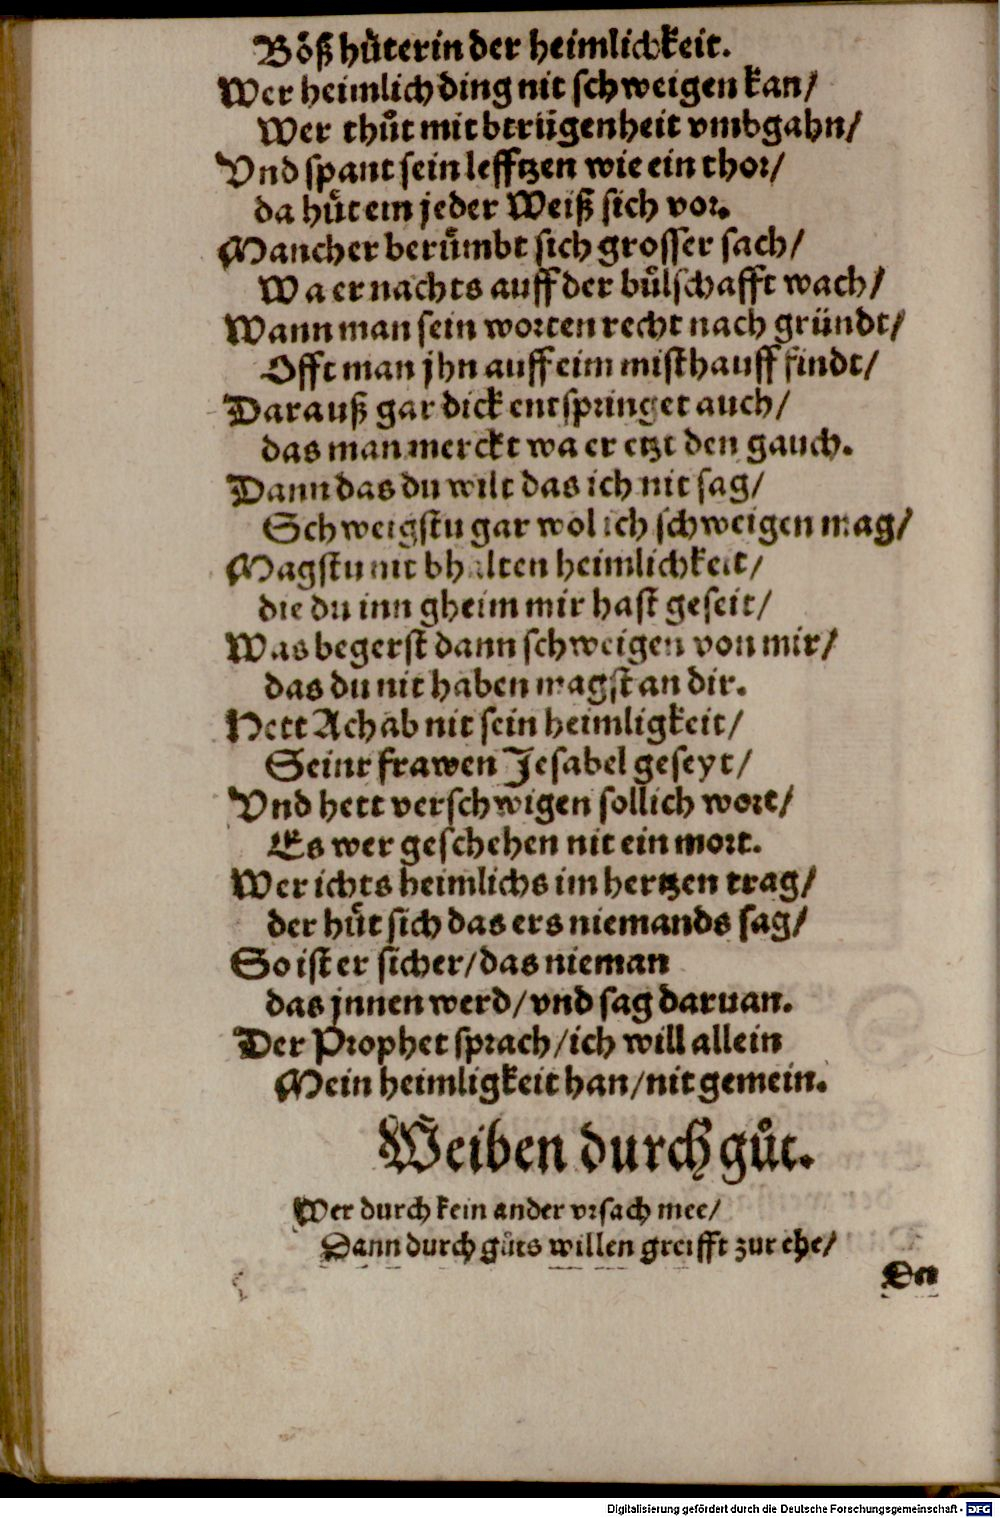 Böß huͤterin der heimlickeit.
Wer heimlich ding nit schweigen kan/
Wer thuͦt mit btruͤgenheit vmbgahn/
Vnd spant sein lefftzen wie ein thor/
da huͤt ein jeder Weiß sich vor.
Mancher beruͤmbt sich grosser sach/
Wa er nachts auff der buͦlschafft wach/
Wann man sein worten recht nach gründt/
Offt man jhn auff eim misthauff findt/
Darauß gar dick entspringet auch/
das man merckt wa er etzt den gauch.
Dann das du wilt das ich nit sag/
Schweigstu gar wol ich schweigen mag/
Magstu nit bhalten heimlichkeit/
die du inn gheim mir hast geseit/
Was begerst dann schweigen von mir/
das du nit haben magst an dir.
Hett Achab nit sein heimligkeit/
Seinr frawen Jesabel geseyt/
Vnd hett verschwigen sollich wort/
Es wer geschehen nit ein mort.
Wer ichts heimlichs im hertzen trag/
der huͤt sich das ers niemands sag/
So ist er sicher/das nieman
das jnnen werd/vnd sag daruan.
Der Prophet sprach/ich will allein
Mein heimligkeit han/nit gemein.
Weiben durch guͦt.
Wer durch kein ander vrsach mee/
Dann durch guͦts willen greifft zur ehe/
Der
Digitalisierung gefördert durch die Deutsche Forschungsgemeinschaft - DFG